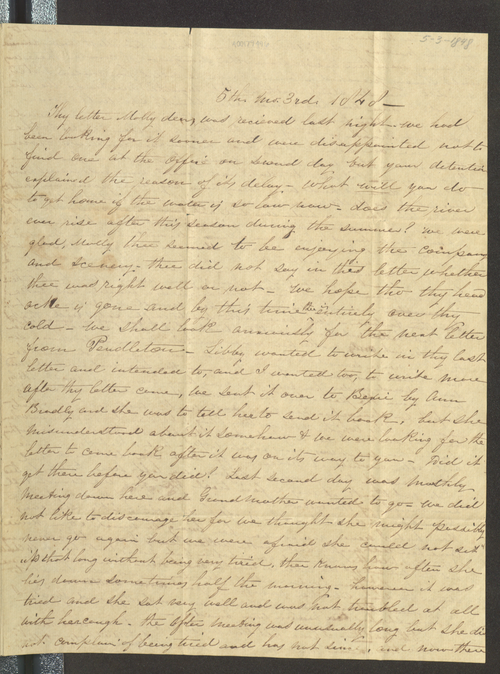 5-3-1848
5th mo. 3rd. 1848 —
Thy letter Molly dear, was recieved last night - we had
been looking for it sooner and were disappointed not to
find one at the office on second day but your detention
explained the reason of its delay - What will you do
to get home if the water is so low now - does the river
ever rise after this season during the summer? We were
glad, Molly thee seemed to be enjoying the company
and scenery - thee did not say in this letter whether
thee was right well or not - We hope tho thy head
ache is gone and by this time thee entirely over thy
cold - we shall look anxiously for the next letter
from Pendleton - Libby wanted to write in thy last
letter and intended to, and I wanted too, to write more
after thy letter came, we sent it over to by Ann
Bradly and she was to tell her to send it back, but she
misunderstood about it somehow & we were looking for the
letter to come back after it was on its way to you - Did it
get there before you did? Last second day was monthly
meeting down here and Grandmother wanted to go - we did
not like to discourage her for we thought she might possibly
never go again but we were afraid she could not sit
up that long without being very tired, thee knows how often she
lies down sometimes half the morning - however it was
tried and she sat very well and was not troubled at all
with her cough - the meeting was unusually long but she did
not complain of being tired and has not since, and now there